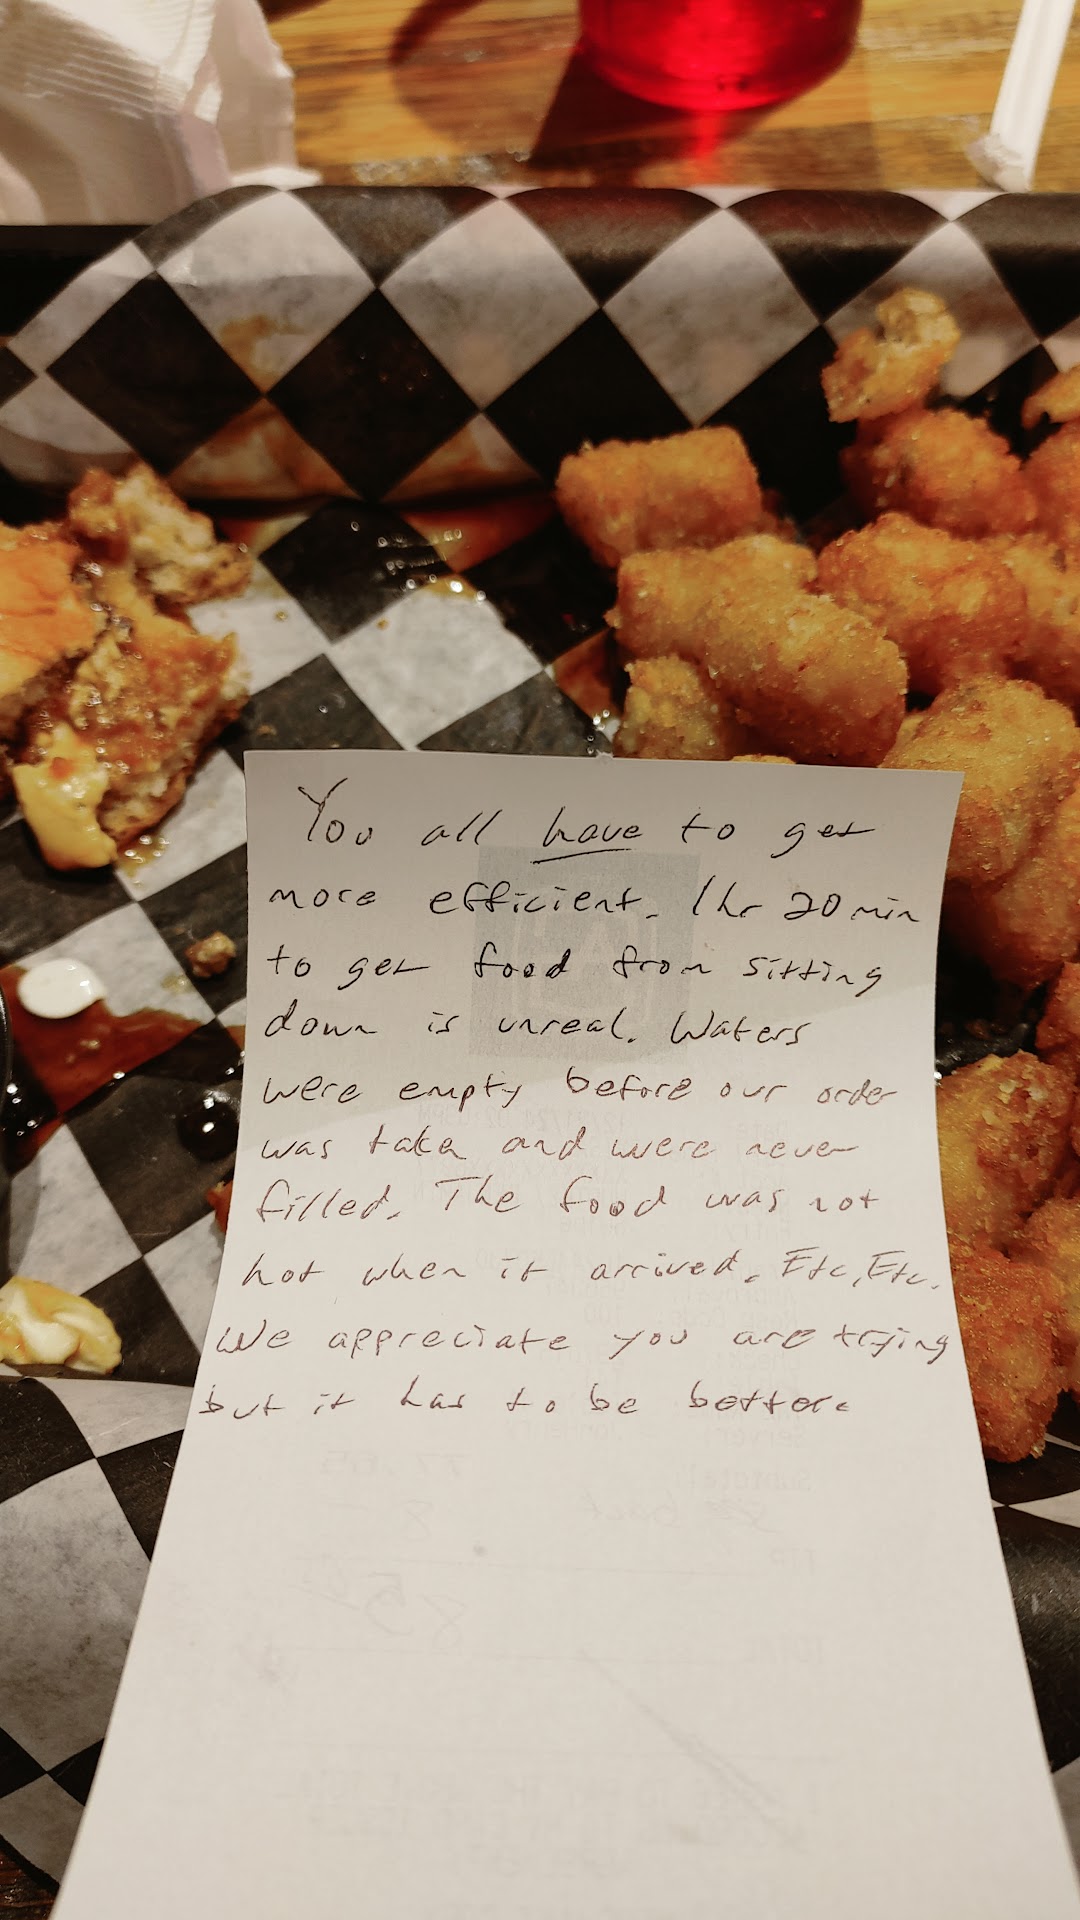 You all have to get
more efficient. 1 hr 20 min
to get food from sitting
down is unreal. Waters
were empty before our order
was taken and were never
filled. The food was not
hot when it arrived. Etc, Etc.
We appreciate you are trying
but it has to be better.